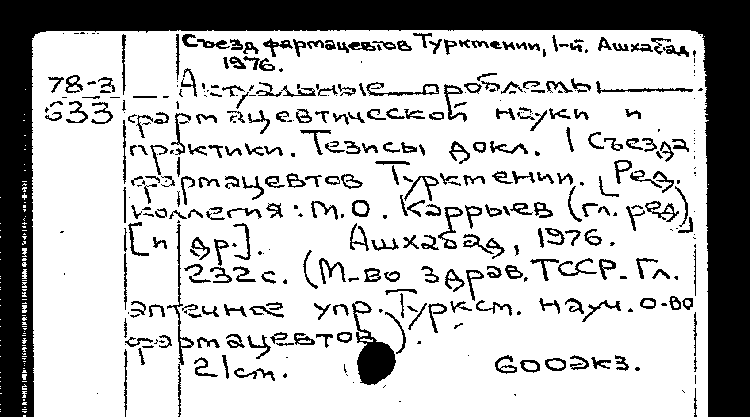 Съезд фармацевтов Туркмении, 1-й. Ашхабад,
1976.
78-3 Актуальные проблемы
633 фармацевтической науки и
практики. Тезисы докл. I Съезда
фармацевтов Туркмении. [Ред.
коллегия: М.О. Каррыев (гл. ред)]
[и др.]. Ашхабад, 1976.
232 с. (М-во здрав. ТССР. Гл.
аптечное упр. Туркм. науч. о-во
фармацевтов).
21 см. 600 экз.